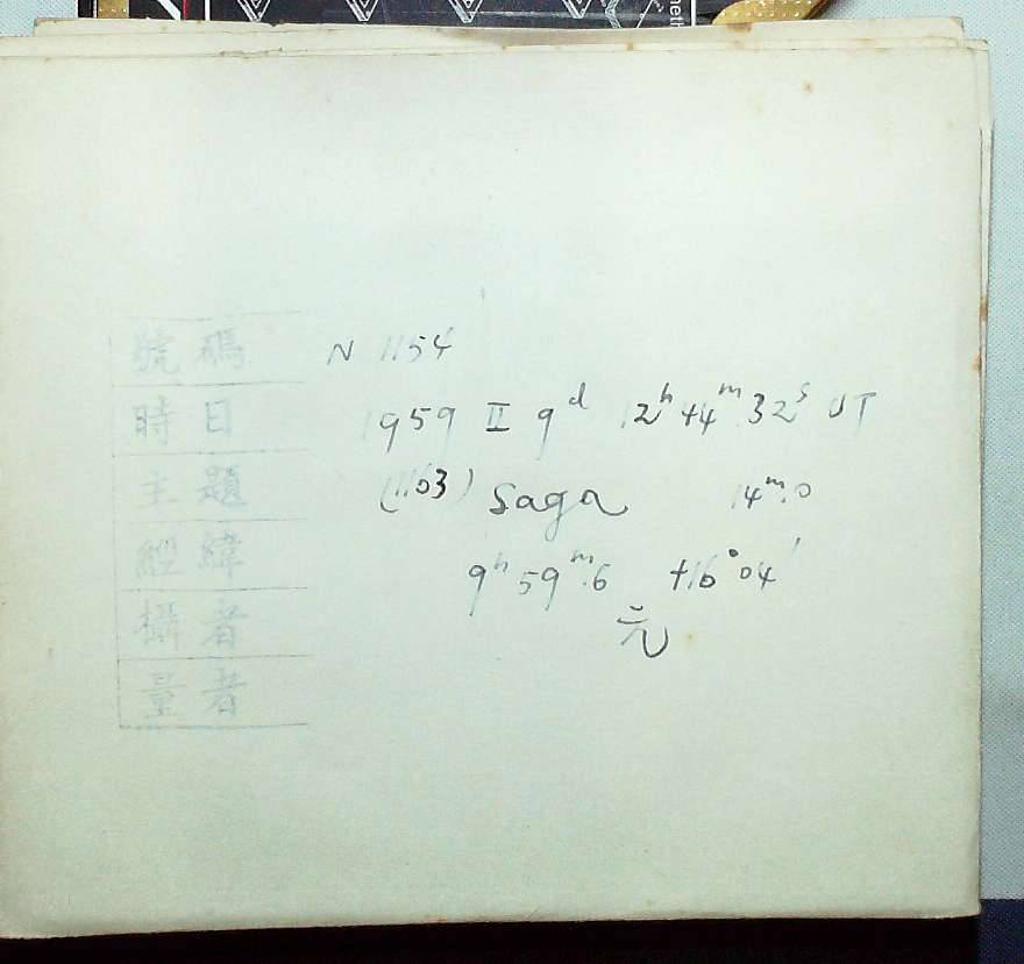 meth
號碼 N 1154
時日 1959 II 9ᵈ 12ʰ44ᵐ32ˢ UT
主題 (1163) Saga 14ᵐ.0
經緯 9ʰ59ᵐ.6 +16°04′
攝者 元
量者